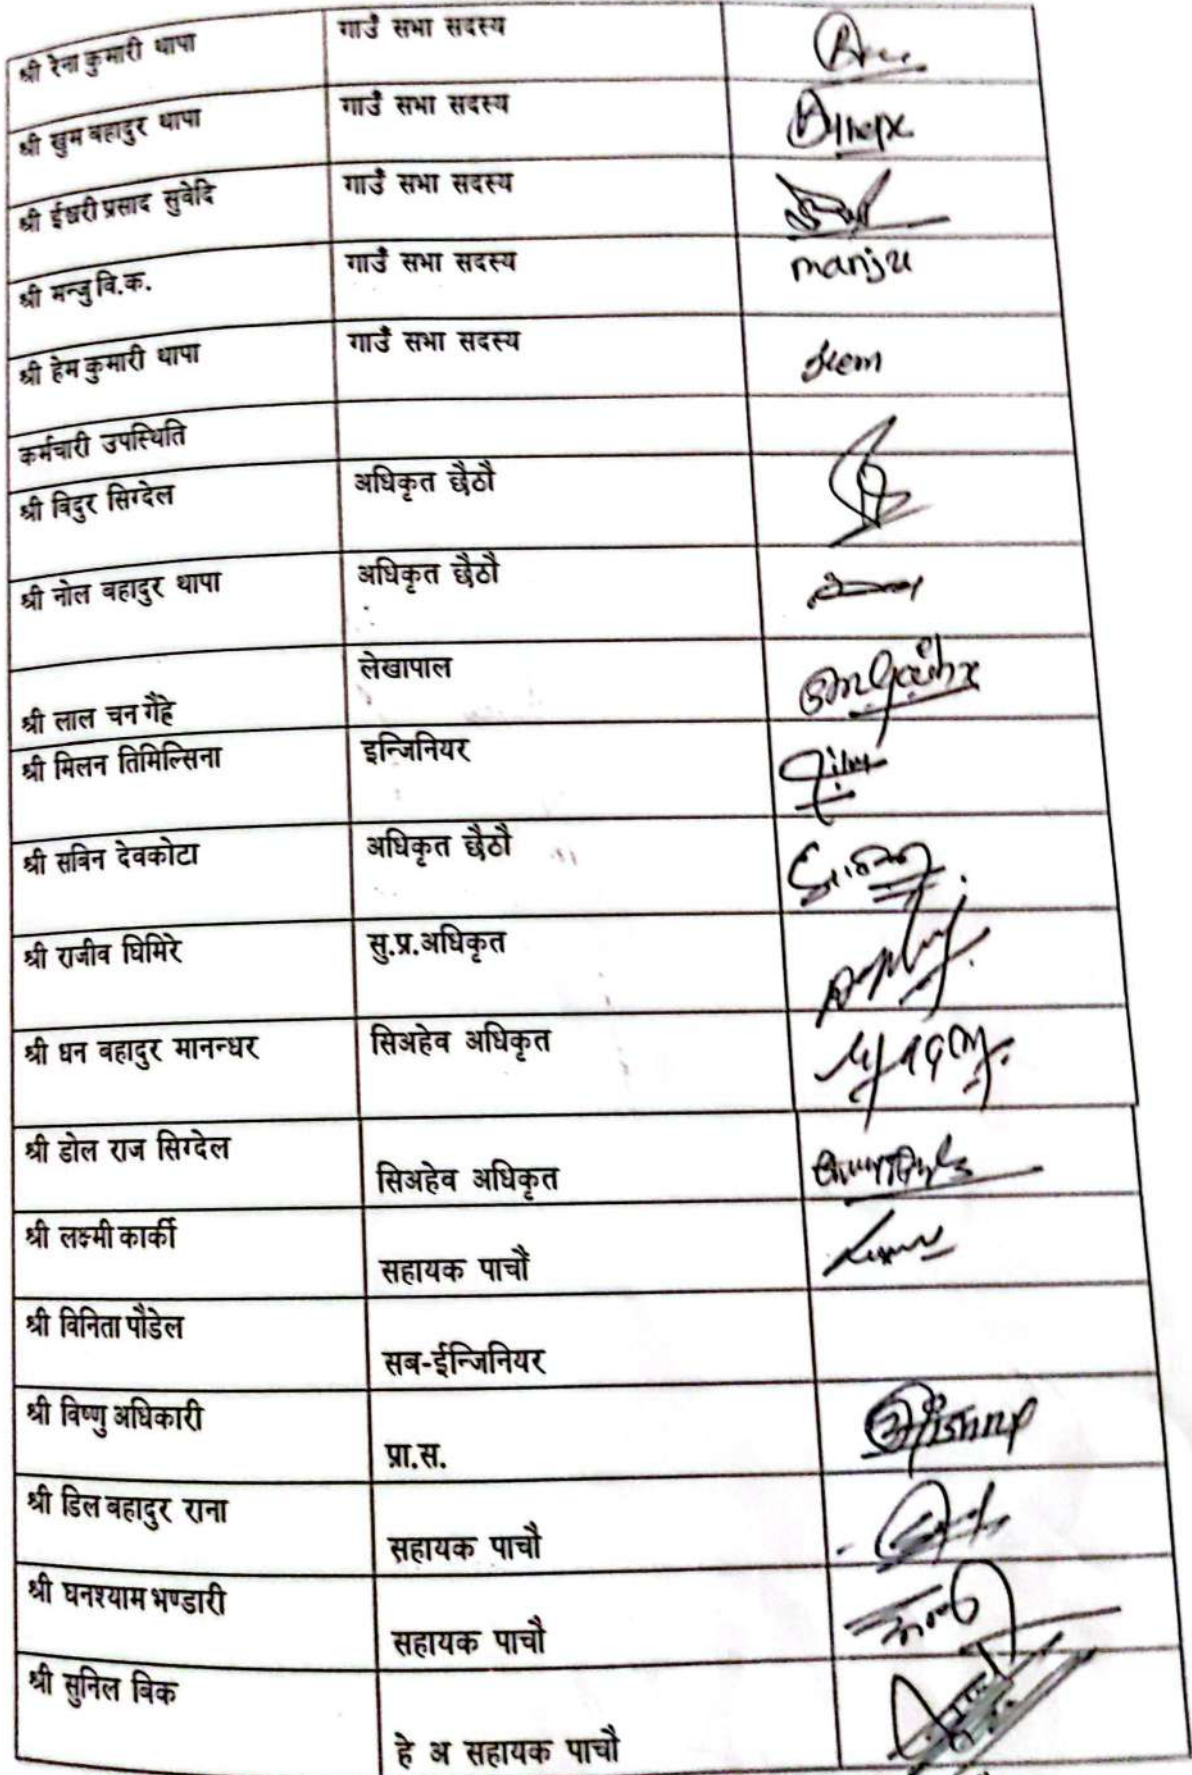 श्री रेना कुमारी थापा गाउँ सभा सदस्य
श्री खुम बहादुर थापा गाउँ सभा सदस्य
श्री ईश्वरी प्रसाद सुवेदि गाउँ सभा सदस्य
श्री मन्जु वि.क. गाउँ सभा सदस्य manju
श्री हेम कुमारी थापा गाउँ सभा सदस्य Hem
कर्मचारी उपस्थिति
श्री विदुर सिग्देल अधिकृत छैठौ
श्री नोल बहादुर थापा अधिकृत छैठौ
श्री लाल चन गैह्रे लेखापाल
श्री मिलन तिमिल्सिना इन्जिनियर
श्री सबिन देवकोटा अधिकृत छैठौ
श्री राजीव घिमिरे सु.प्र.अधिकृत
श्री धन बहादुर मानन्धर सिअहेव अधिकृत
श्री डोल राज सिग्देल सिअहेव अधिकृत
श्री लक्ष्मी कार्की सहायक पाचौं
श्री विनिता पौडेल सब-ईन्जिनियर
श्री विष्णु अधिकारी प्रा.स.
श्री डिल बहादुर राना सहायक पाचौ
श्री घनश्याम भण्डारी सहायक पाचौ
श्री सुनिल बिक हे अ सहायक पाचौ